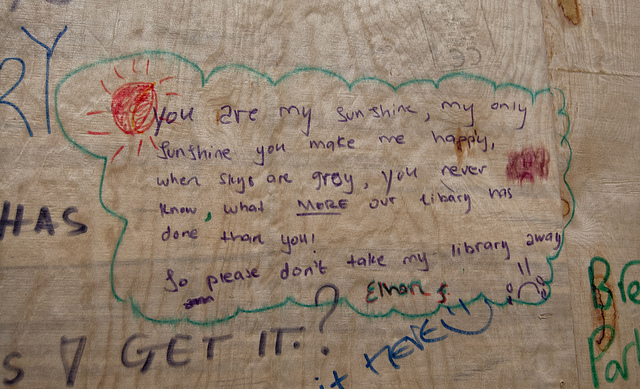 RY
You are my sunshine, my only
sunshine you make me happy,
when skys are grey, you never
know, what MORE our libary has
done than you!
So please don't take my library away
HAS
GET IT.?
it HERE
Bre
Par